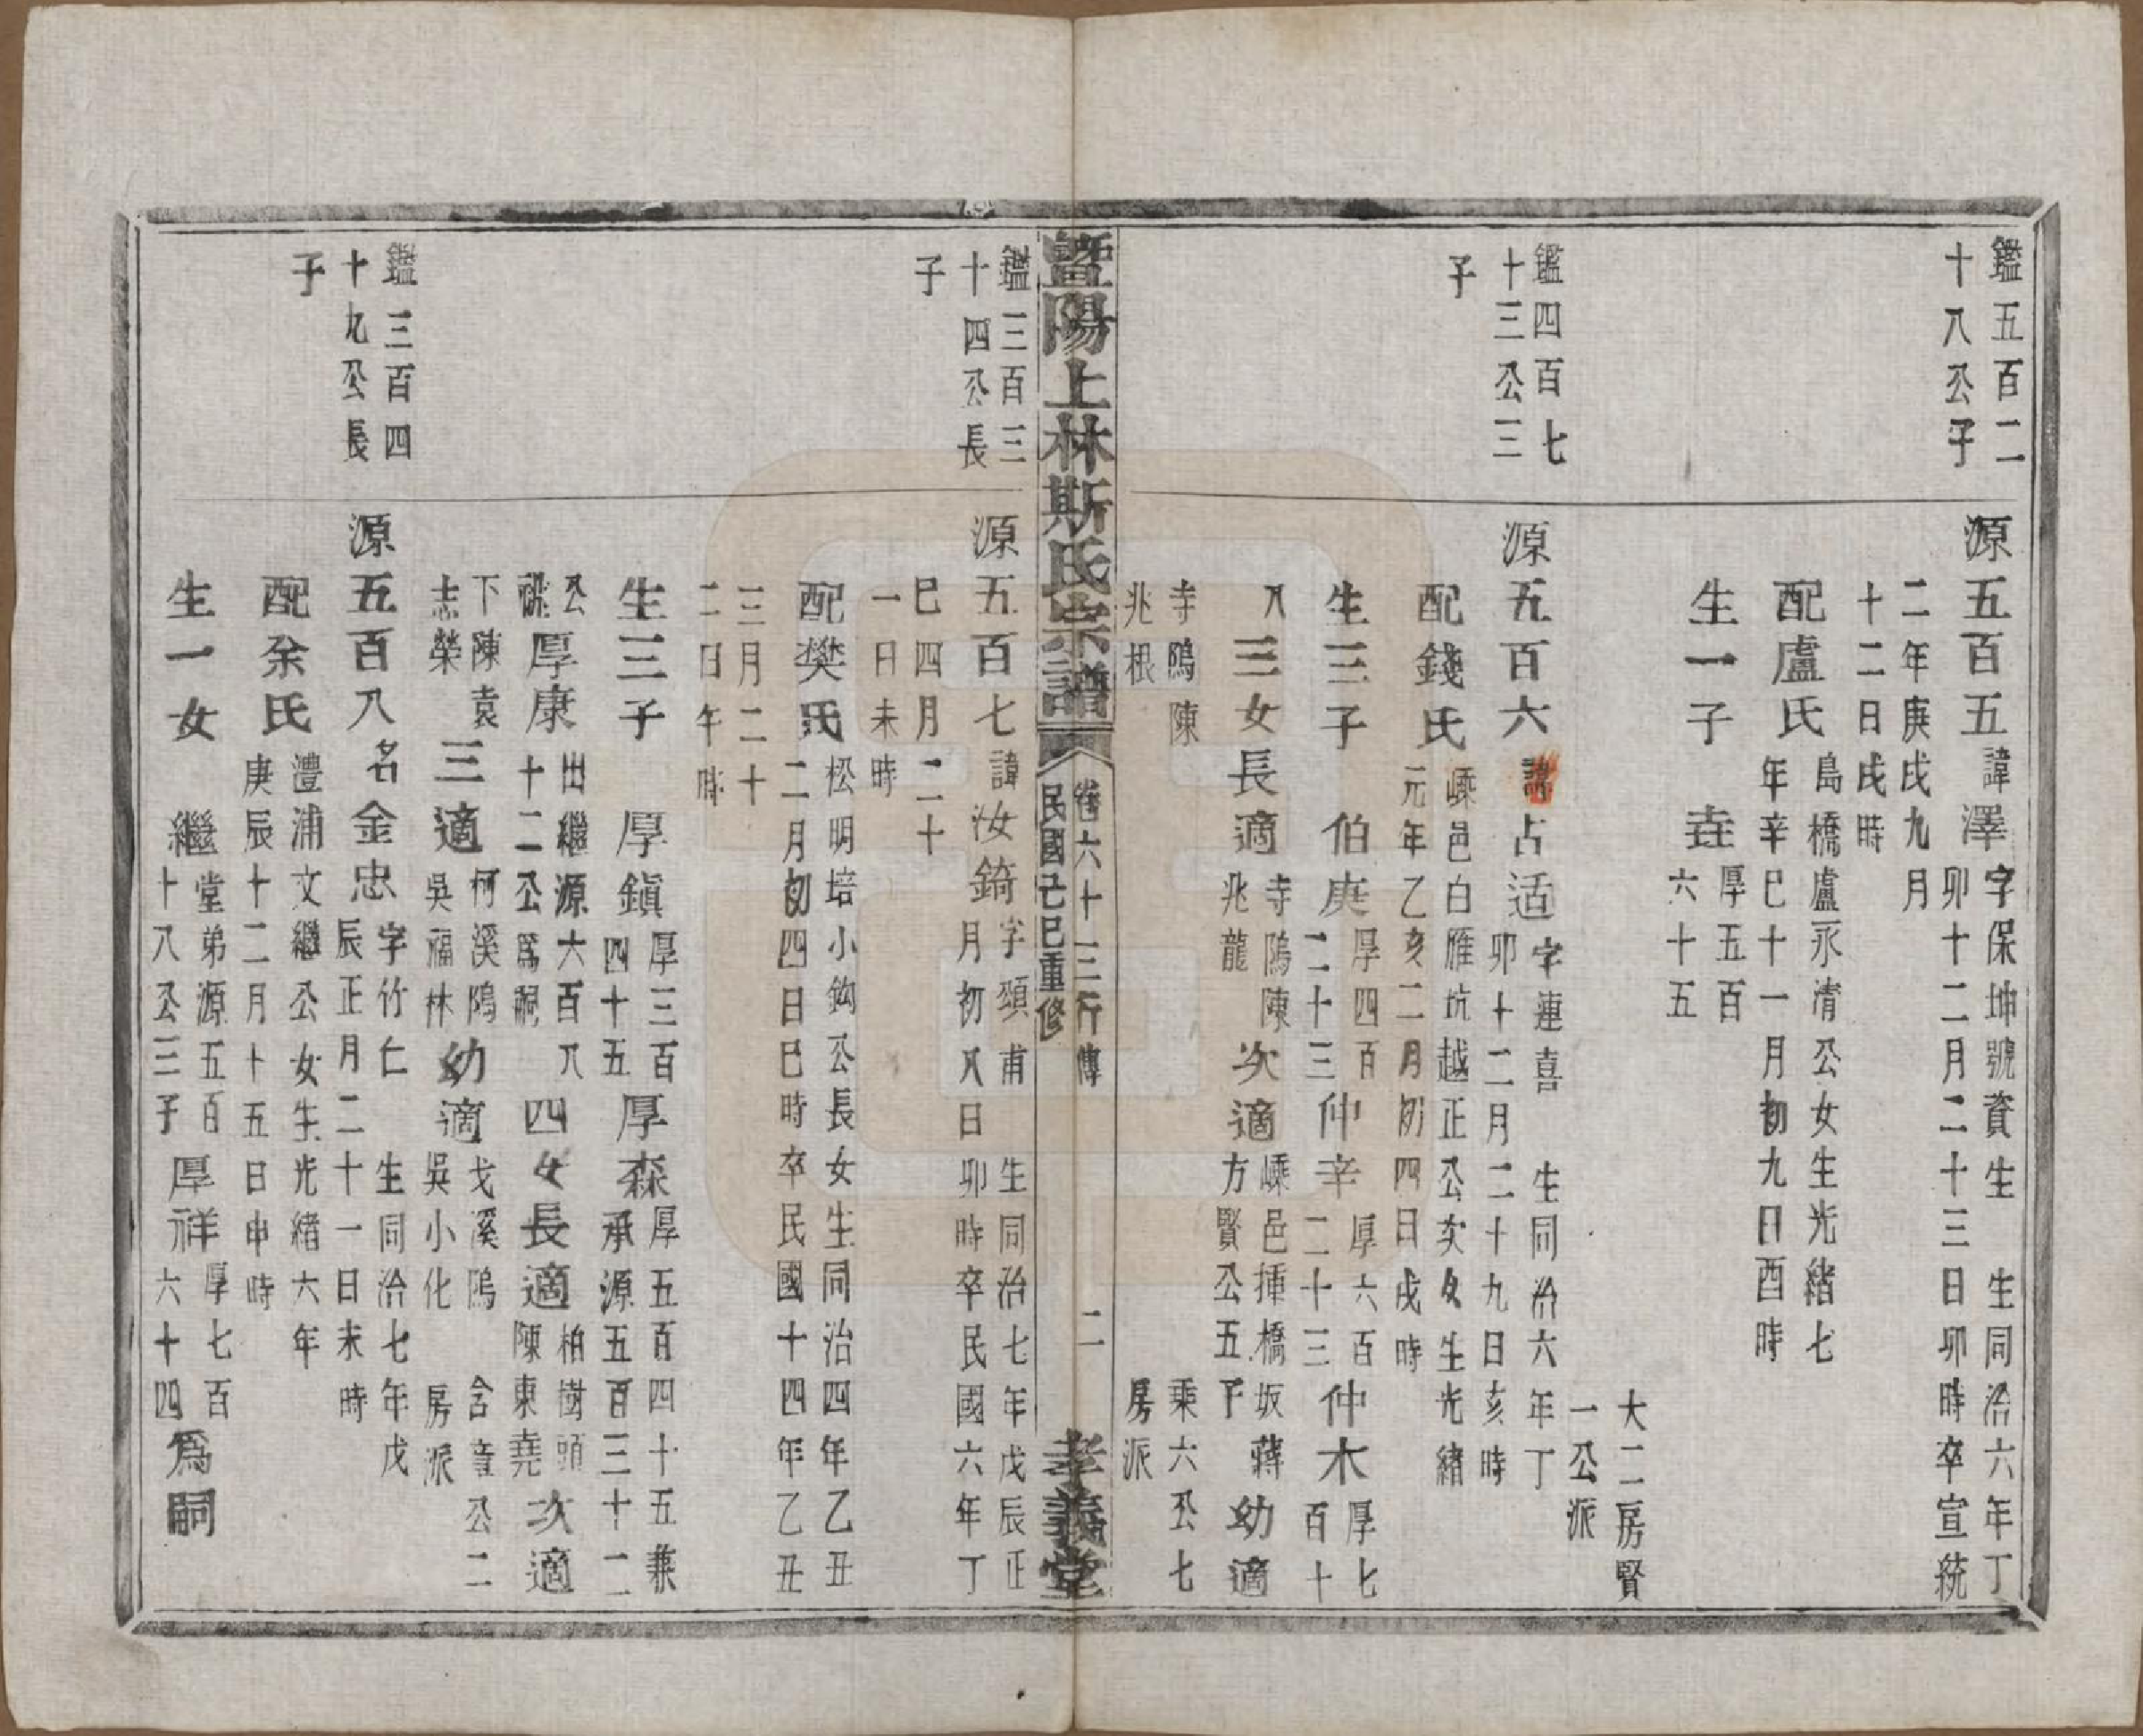 鑑五百二
十八公子
源五百五
諱澤
字保坤號資生 生同治六年丁
卯十二月二十三日卯時卒宣統
二年庚戌九月
十二日戌時
配盧氏
島橋盧永清公女生光緒七
年辛巳十一月初九日酉時
生一子 垚
厚五百
六十五
大二房賢
一公派
鑑四百七
十三公三
子
源五百六
諱占适
字連喜 生同治六年丁
卯十二月二十九日亥時
配錢氏
嵊邑白雁坑越正公次女生光緒
元年乙亥二月初四日戌時
生三子 伯庚
厚四百
二十三
仲辛
厚六百
二十三
仲木
厚七
百十
八
三女長適
寺隖陳
兆龍
次適
嵊邑揰橋坂蔣
方賢公五子
幼適
寺隖陳
兆根
乘六公七
房派
暨陽上林斯氏宗譜
卷六十三行傳
民國己巳重修
二
孝義堂
鑑三百三
十四公長
子
源五百七
諱汝錡
字頌甫 生同治七年戊辰正
月初八日卯時卒民國六年丁
巳四月二十
一日未時
配樊氏
松明培小鈎公長女生同治四年乙丑
二月初四日巳時卒民國十四年乙丑
三月二十
二日午時
生三子 厚鎮
厚三百
四十五
厚森
厚五百四十五兼
承源五百三十二
公
祧
厚康
出繼源六百八
十二公爲嗣
四女長適
柏樹頭
陳東堯
次適
下陳袁
志榮
三適
柯溪隖
吳福林
幼適
戈溪隖
吳小化
含章公二
房派
鑑三百四
十九公長
子
源五百八
名金忠
字竹仁 生同治七年戊
辰正月二十一日未時
配余氏
澧浦文繼公女生光緒六年
庚辰十二月十五日申時
生一女 繼
堂弟源五百
十八公三子
厚祥
厚七百
六十四
爲嗣